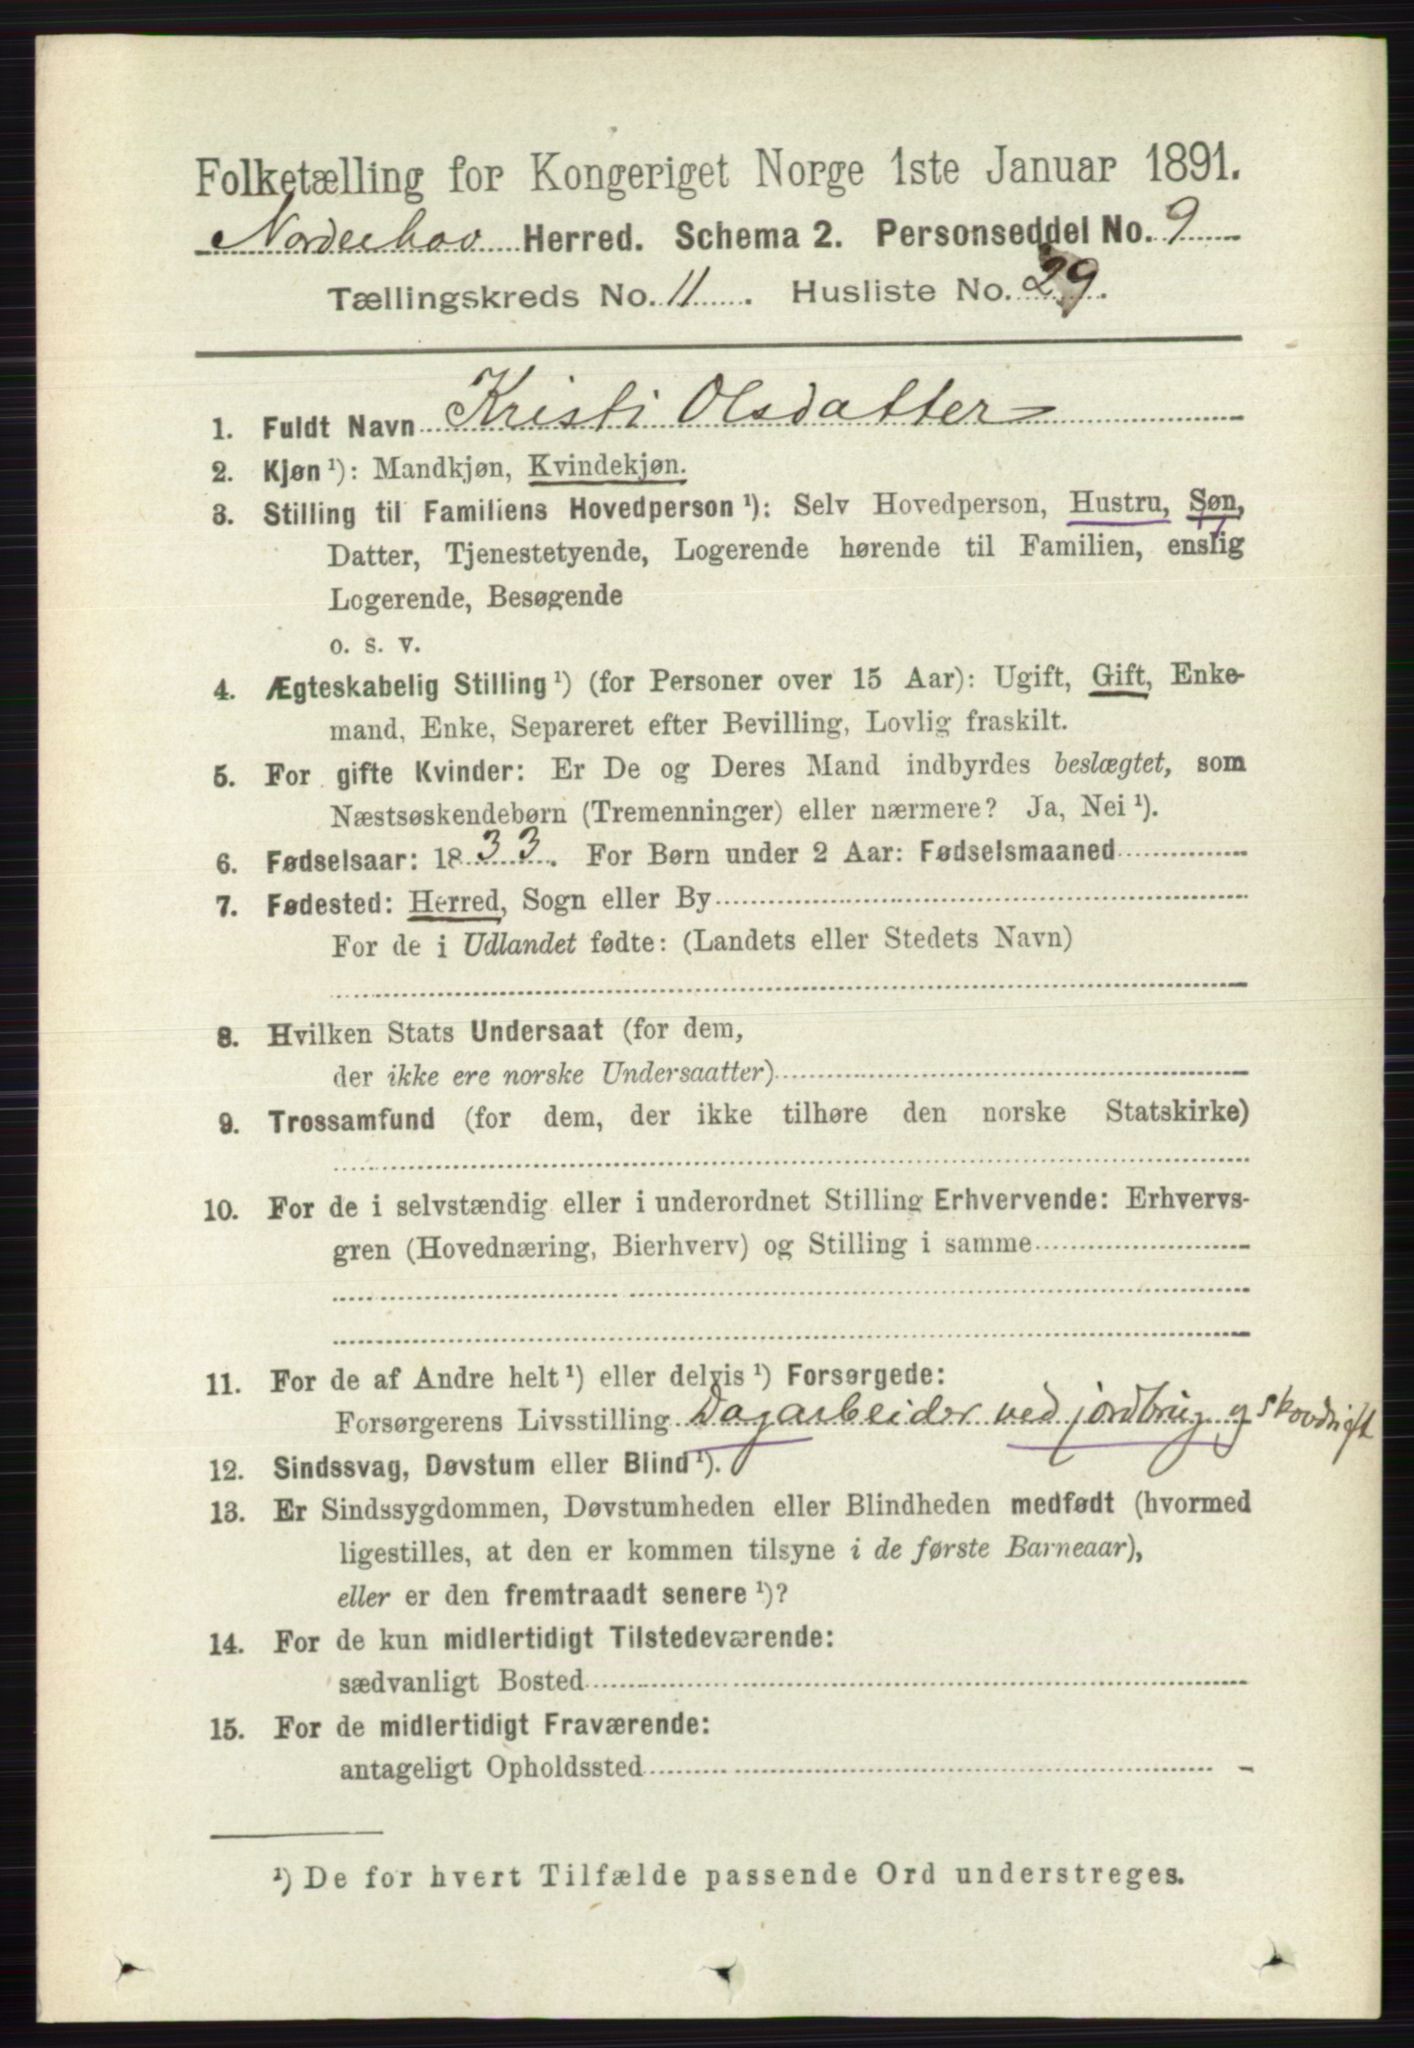 Folketælling for Kongeriget Norge 1ste Januar 1891.
Norderhov Herred. Schema 2. Personseddel No. 9
Tællingskreds No. 11. Husliste No. 29.
1. Fuldt Navn Kristi Olsdatter
2. Kjøn ¹): Mandkjøn, Kvindekjøn.
3. Stilling til Familiens Hovedperson ¹): Selv Hovedperson, Hustru, Søn,
Datter, Tjenestetyende, Logerende hørende til Familien, enslig
Logerende, Besøgende
o. s. v.
4. Ægteskabelig Stilling ¹) (for Personer over 15 Aar): Ugift, Gift, Enke-
mand, Enke, Separeret efter Bevilling, Lovlig fraskilt.
5. For gifte Kvinder: Er De og Deres Mand indbyrdes beslægtet, som
Næstsøskendebørn (Tremenninger) eller nærmere? Ja, Nei ¹).
6. Fødselsaar: 1833. For Børn under 2 Aar: Fødselsmaaned
7. Fødested: Herred, Sogn eller By
For de i Udlandet fødte: (Landets eller Stedets Navn)
8. Hvilken Stats Undersaat (for dem,
der ikke ere norske Undersaatter)
9. Trossamfund (for dem, der ikke tilhøre den norske Statskirke)
10. For de i selvstændig eller i underordnet Stilling Erhvervende: Erhvervs-
gren (Hovednæring, Bierhverv) og Stilling i samme
11. For de af Andre helt ¹) eller delvis ¹) Forsørgede:
Forsørgerens Livsstilling Dagarbeider ved jordbrug og skovdrift
12. Sindssvag, Døvstum eller Blind ¹).
13. Er Sindssygdommen, Døvstumheden eller Blindheden medfødt (hvormed
ligestilles, at den er kommen tilsyne i de første Barneaar),
eller er den fremtraadt senere ¹)?
14. For de kun midlertidigt Tilstedeværende:
sædvanligt Bosted
15. For de midlertidigt Fraværende:
antageligt Opholdssted
¹) De for hvert Tilfælde passende Ord understreges.